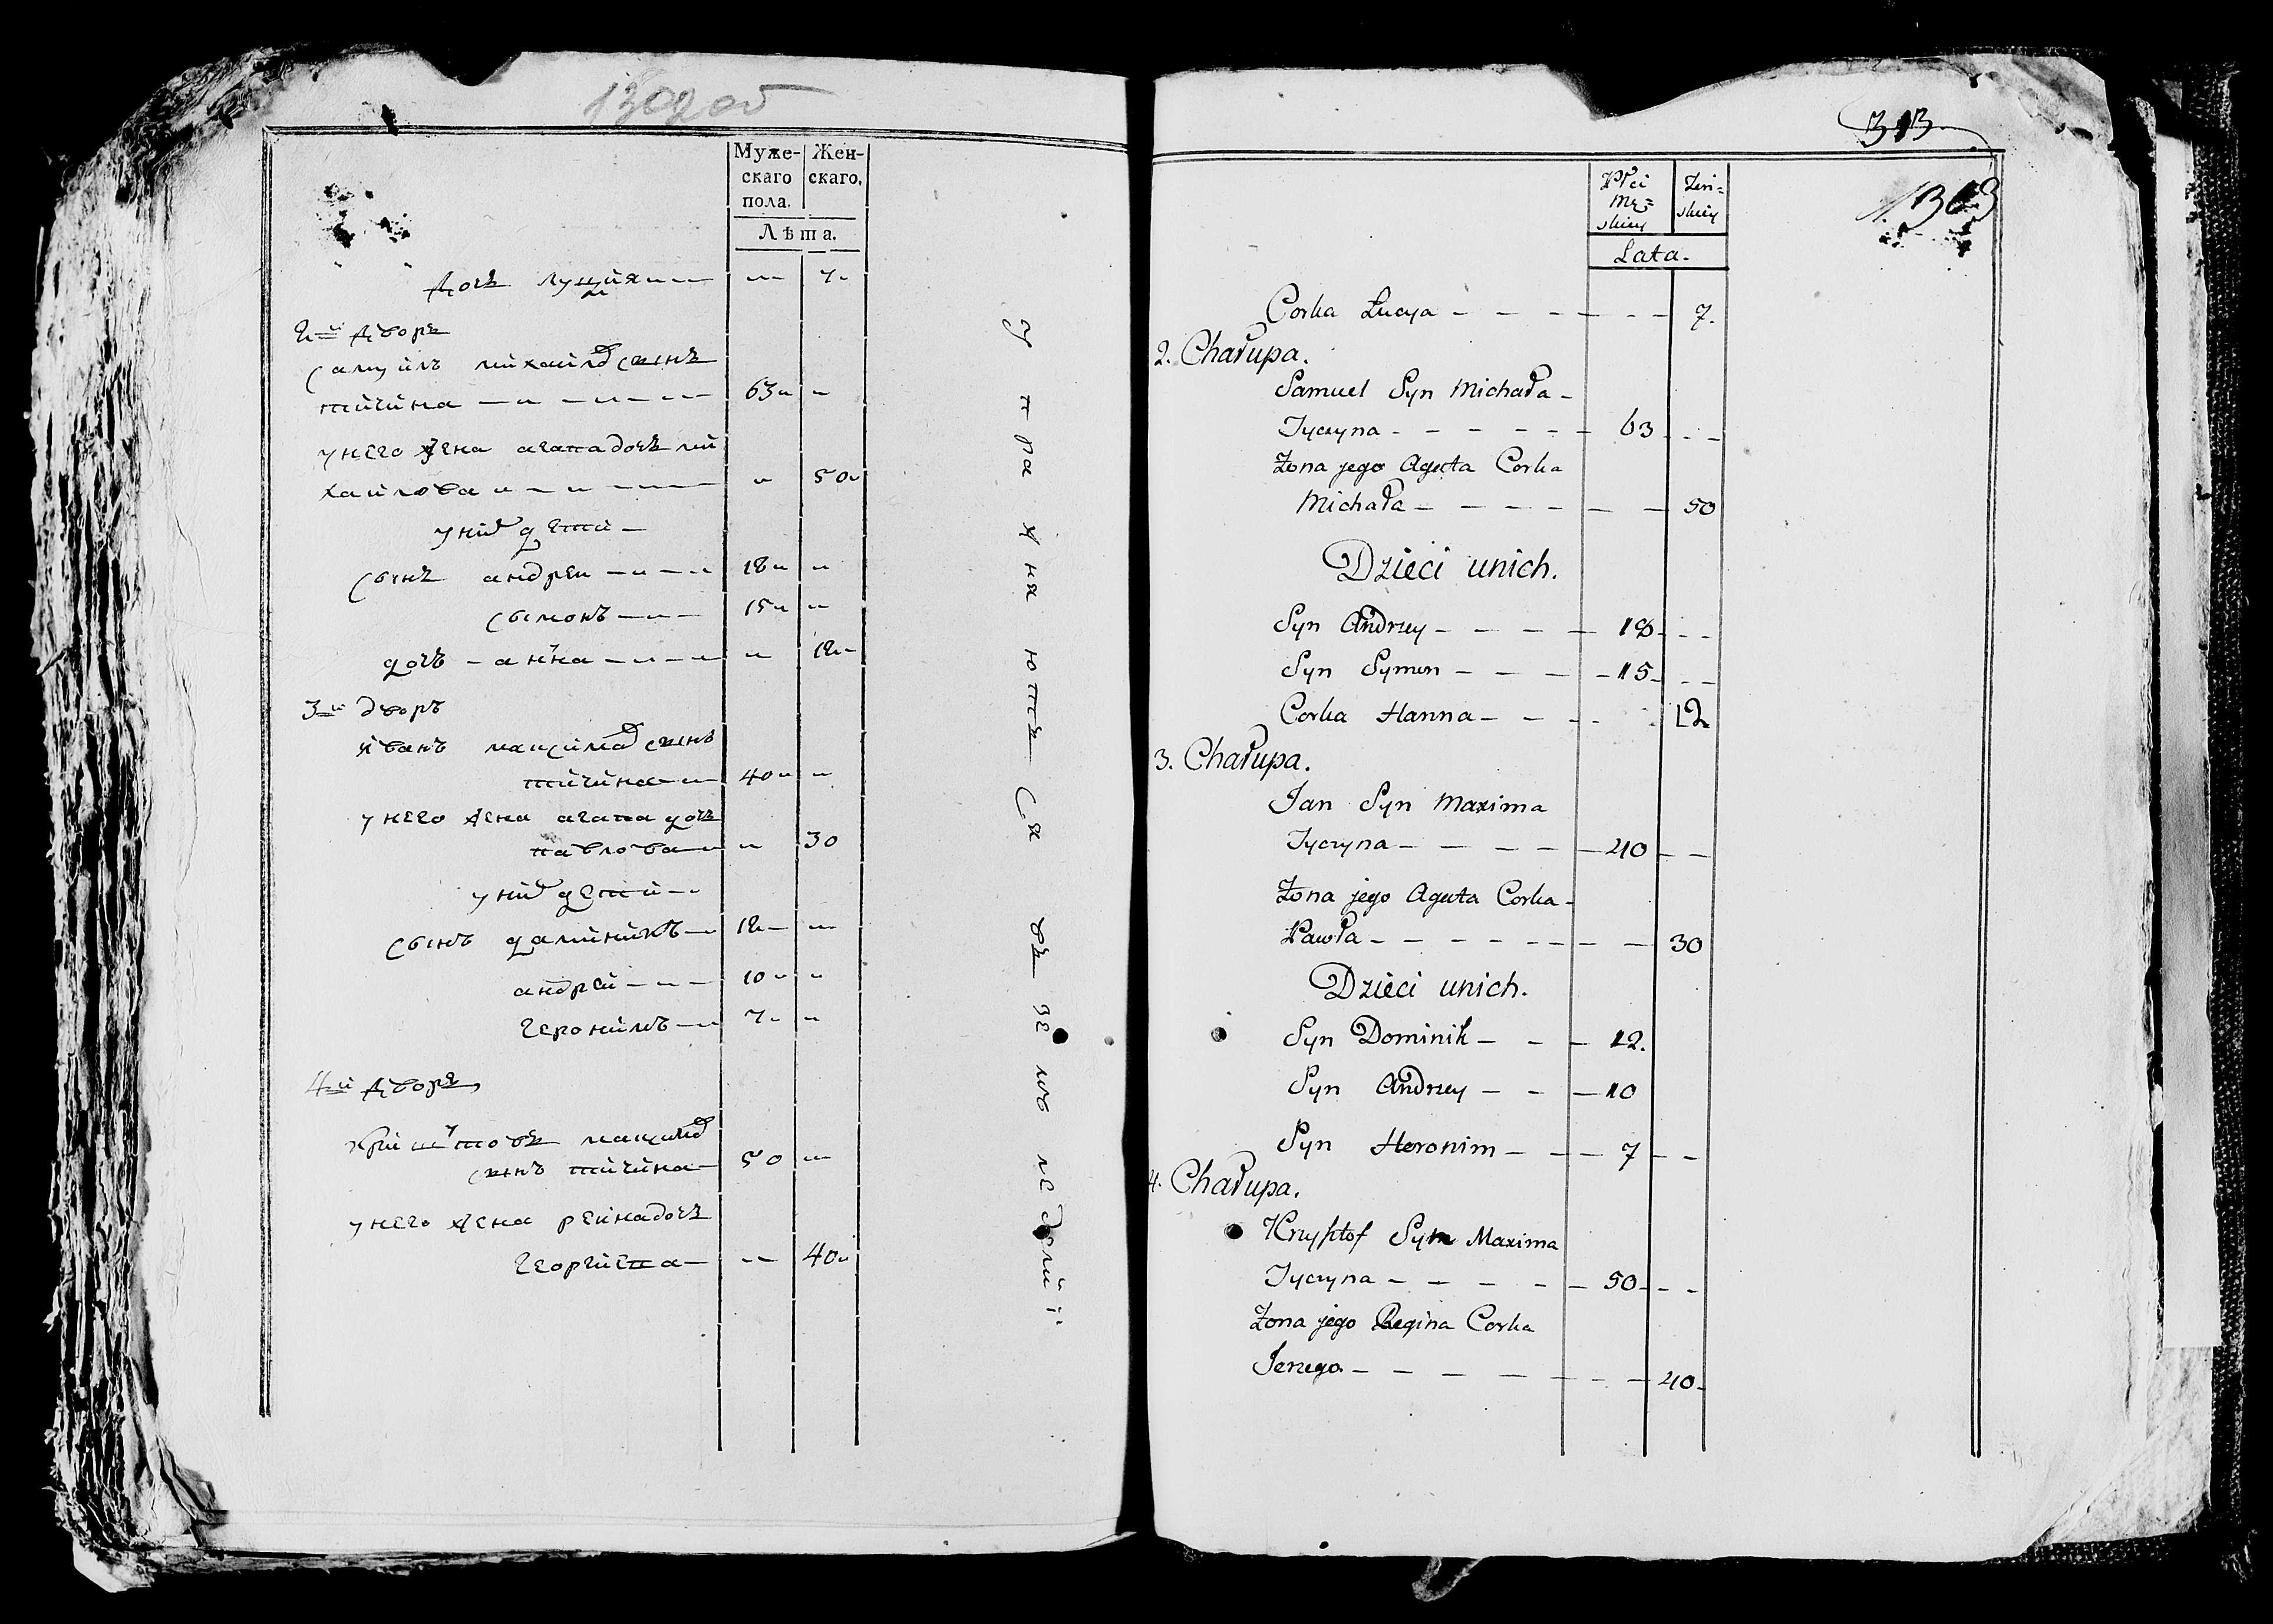 1302 об
Муже-
скаго
пола.
Жен-
скаго.
Лѣта.
дочь луция 7
2й дворъ
самуилъ михайловъ сынъ
тичина 63
у него жена агата дочь ми
хайлова 50
у них дети
сынъ андреи 18
сымонъ 15
дочь анна 12
3й дворъ
иванъ мацимов сынъ
тичина 40
у него жена агата дочь
павлова 30
у них дети
сынъ даминикъ 12
андрей 10
геронимъ 7
4й дворъ
криштовъ мацимов
сынъ тичина 50
у него жена рейна дочь
георгиева 40
313
1303
Płci
Mę=
skiey
Żeń=
skiey
Lata.
Corka Lucya - - - - - - 7.
2. Chałupa.
Samuel Syn Michała -
Tyczyna - - - - - - 63 - -
Żona jego Agata Corka
Michała - - - - - - 50
Dzieci unich.
Syn Andrzey - - - - 18 - -
Syn Symon - - - - 15 - -
Corka Hanna - - - 12
3. Chałupa.
Jan Syn Maxima
Tyczyna - - - - - 40 - -
Żona jego Agata Corka -
Pawła - - - - - - - - 30
Dzieci unich.
Syn Dominik - - - 12.
Syn Andrzey - - - 10
Syn Heronim - - - 7 - -
4. Chałupa.
Krzysztof Syn Maxima
Tyczyna - - - - - 50 - - -
Żona jego Regina Corka
Jerzego - - - - - - - 40 -